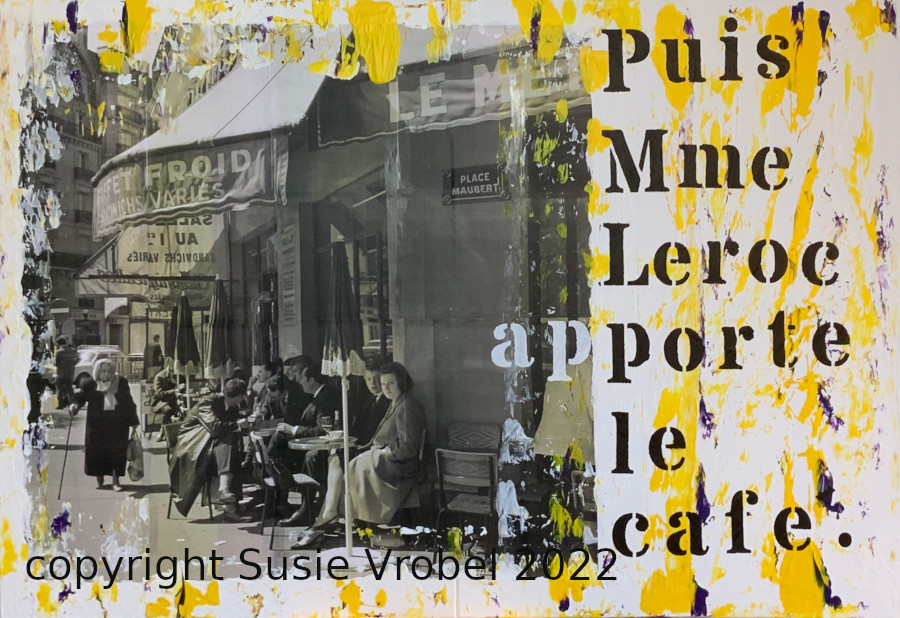 LE ME
FROID
VARIÉS
PLACE
MAUBERT
AU
SANDWICHS VARIÉS
Puis
Mme
Leroc
apporte
le
cafe.
copyright Susie Vrobel 2022